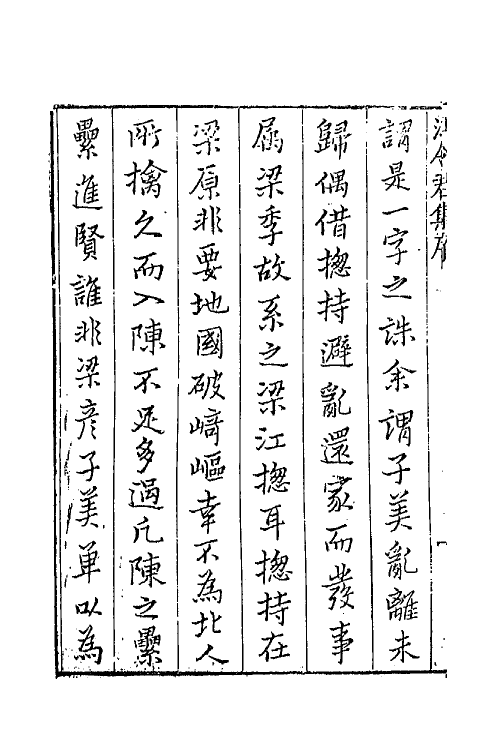 江令君集序
謂是一字之誅余謂子美亂離未
歸偶借揔持避亂還家而發事
属梁季故系之梁江揔耳揔持在
梁原非要地國破崎嶇幸不為北人
所擒久而入陳不足多過凡陳之纍
纍進賢誰非梁彦子美單以為